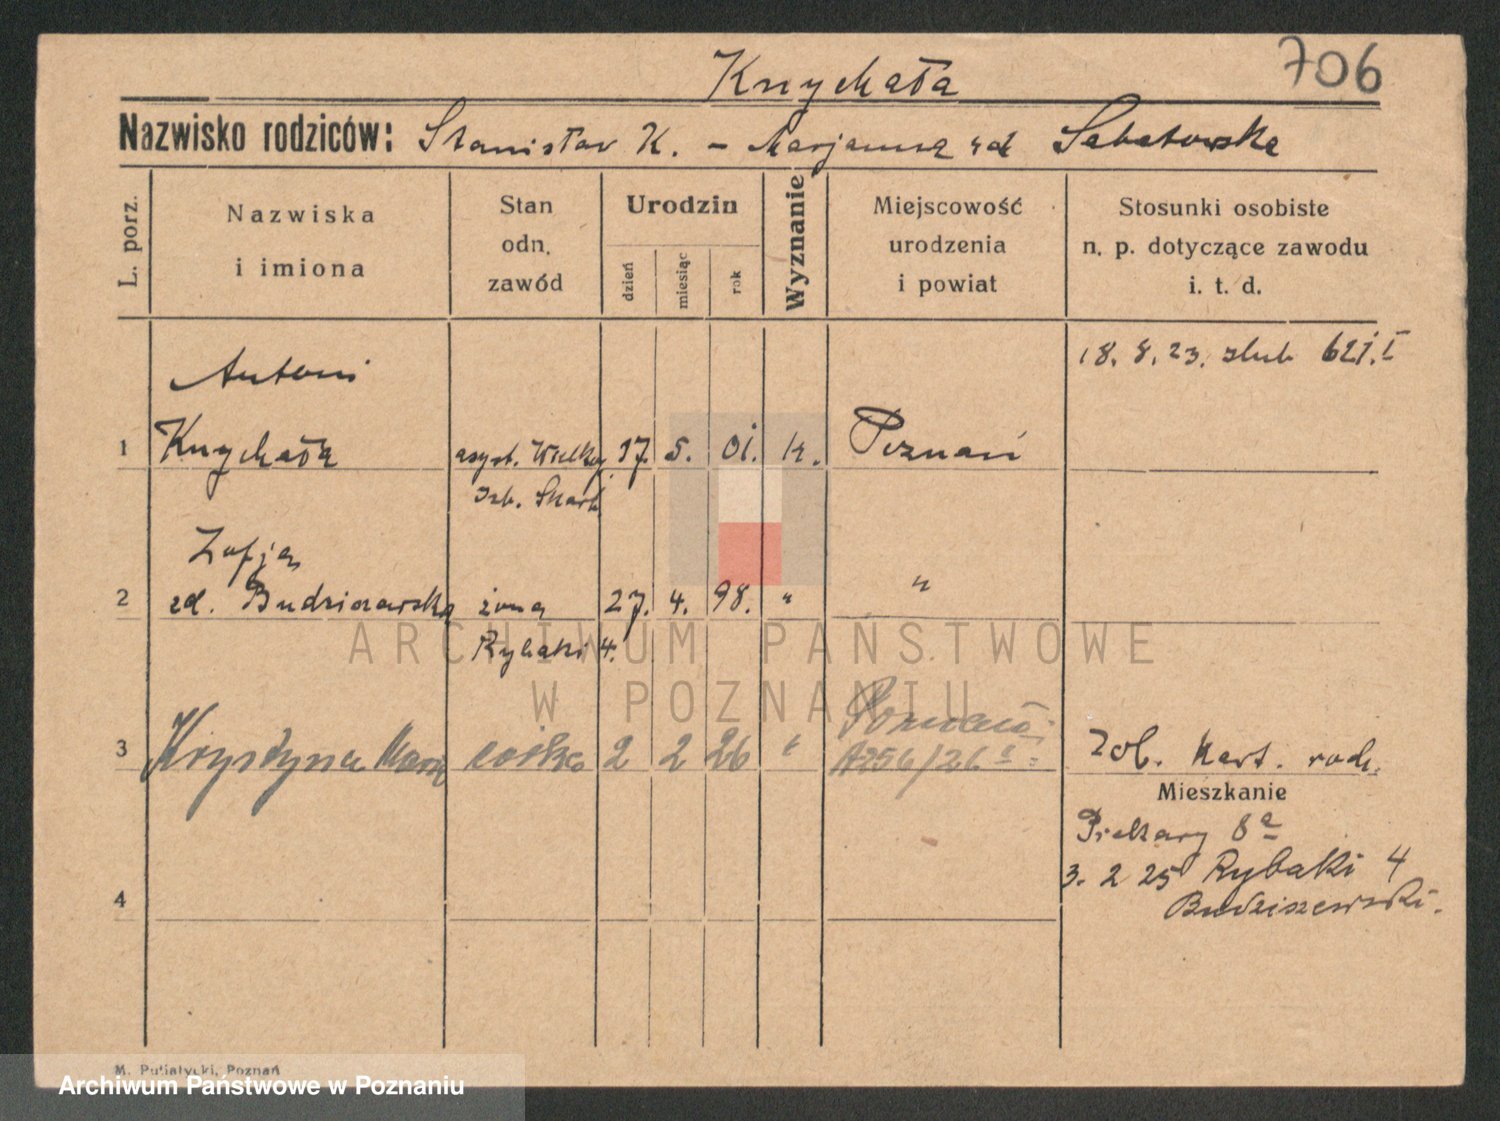 706
Knychała
Nazwisko rodziców: Stanisław K. - Marjanna zd Sabatowska
L. porz.
Nazwiska i imiona
Stan odn. zawód
Urodzin
dzień
miesiąc
rok
Wyznanie
Miejscowość urodzenia i powiat
Stosunki osobiste n. p. dotyczące zawodu i. t. d.
18. 8. 23. ślub 621. I
Antoni
1 Knychała asyst. Wielkp. 17. 5. 01. k. Poznań
Izb. Skarb.
Zofja
2 zd. Budziszewska żona 27. 4. 98. " "
Rybaki 4.
3 Krystyna Maria córka 2 2 26 " Poznań
256/26
Zob. Kart. rodz.
Mieszkanie
Piekary 8a
3. 2 25 Rybaki 4
Budziszewski.
4
ARCHIWUM PAŃSTWOWE
W POZNANIU
M. Putiatycki, Poznań
Archiwum Państwowe w Poznaniu